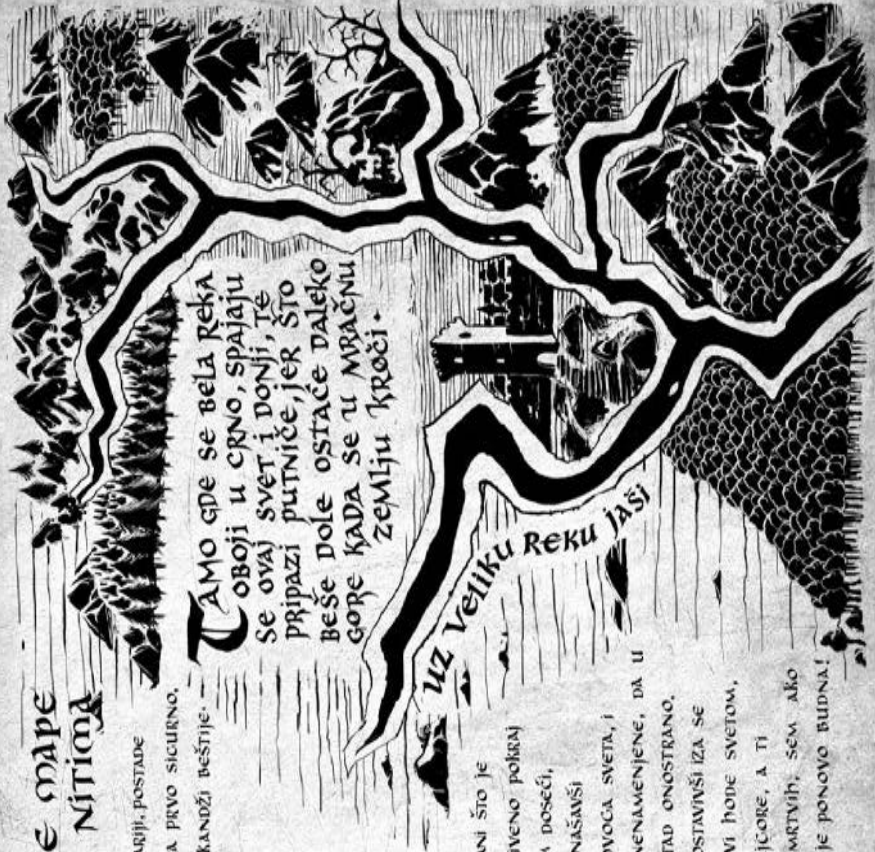 E MAPE
NITIMA
ARIJI, POSTADE
A PRVO SIGURNO,
KANDŽI BEŠTIJE.
TAMO GDE SE BELA REKA
OBOJI U CRNO, SPAJAJU
SE OVAJ SVET I DONJI, TE
PRIPAZI PUTNIČE, JER ŠTO
BEŠE DOLE OSTAĆE DALEKO
GORE KADA SE U MRAČNU
ZEMLJU KROČI.
UZ VELIKU REKU JAŠI
ANI ŠTO JE
IVENO POKRAJ
DOSEĆI,
NAŠAVŠI
OVOCA SVETA, I
NENAMENJENE, DA U
TAD ONOSTRANO,
OSTAVIVŠI IZA SE
VI HODE SVETOM,
JČORE, A TI
MRTVIH, SEM AKO
JE PONOVO BUDNA!